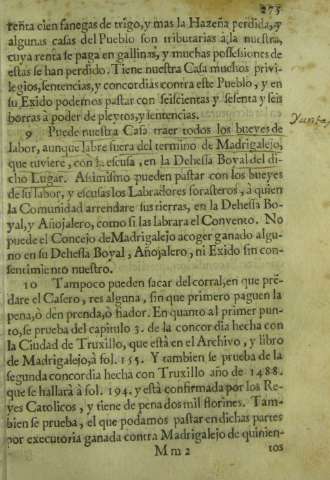 275
renta cien fanegas de trigo, y mas la Hazeña perdida, y
algunas casas del Pueblo son tributarias à la nuestra,
cuya renta se paga en gallinas, y muchas possessiones de
estas se han perdido. Tiene nuestra Casa muchos privi-
legios, sentencias, y concordias contra este Pueblo, y en
su Exido podemos pastar con seiscientas y sesenta y seis
borras a poder de pleytos, y sentencias.
9 Puede nuestra Casa traer todos los bueyes de
labor, aunque labre fuera del termino de Madrigalejo,
que tuviere, con la escusa, en la Dehessa Boyal del di-
cho Lugar. Asimismo pueden pastar con los bueyes
de su labor, y escusas los Labradores forasteros, à quien
la Comunidad arrendare sus tierras, en la Dehessa Bo-
yal, y Añojalero, como si las labrara el Convento. No
puede el Concejo de Madrigalejo acoger ganado algu-
no en su Dehessa Boyal, Añojalero, ni Exido sin con-
sentimiento nuestro.
10 Tampoco pueden sacar del corral, en que pré-
dare el Casero, res alguna, sin que primero paguen la
pena, ò den prenda, ò fiador. En quanto al primer pun-
to, se prueba del capitulo 3. de la concordia hecha con
la Ciudad de Truxillo, que està en el Archivo, y libro
de Madrigalejo, à fol. 155. Y tambien se prueba de la
segunda concordia hecha con Truxillo año de 1488.
que se hallarà à fol. 194. y està confirmada por los Re-
yes Catolicos, y tiene de pena dos mil florines. Tam-
bien se prueba, el que podamos pastar en dichas partes
por executoria ganada contra Madrigalejo de quinien-
Mm2 tos